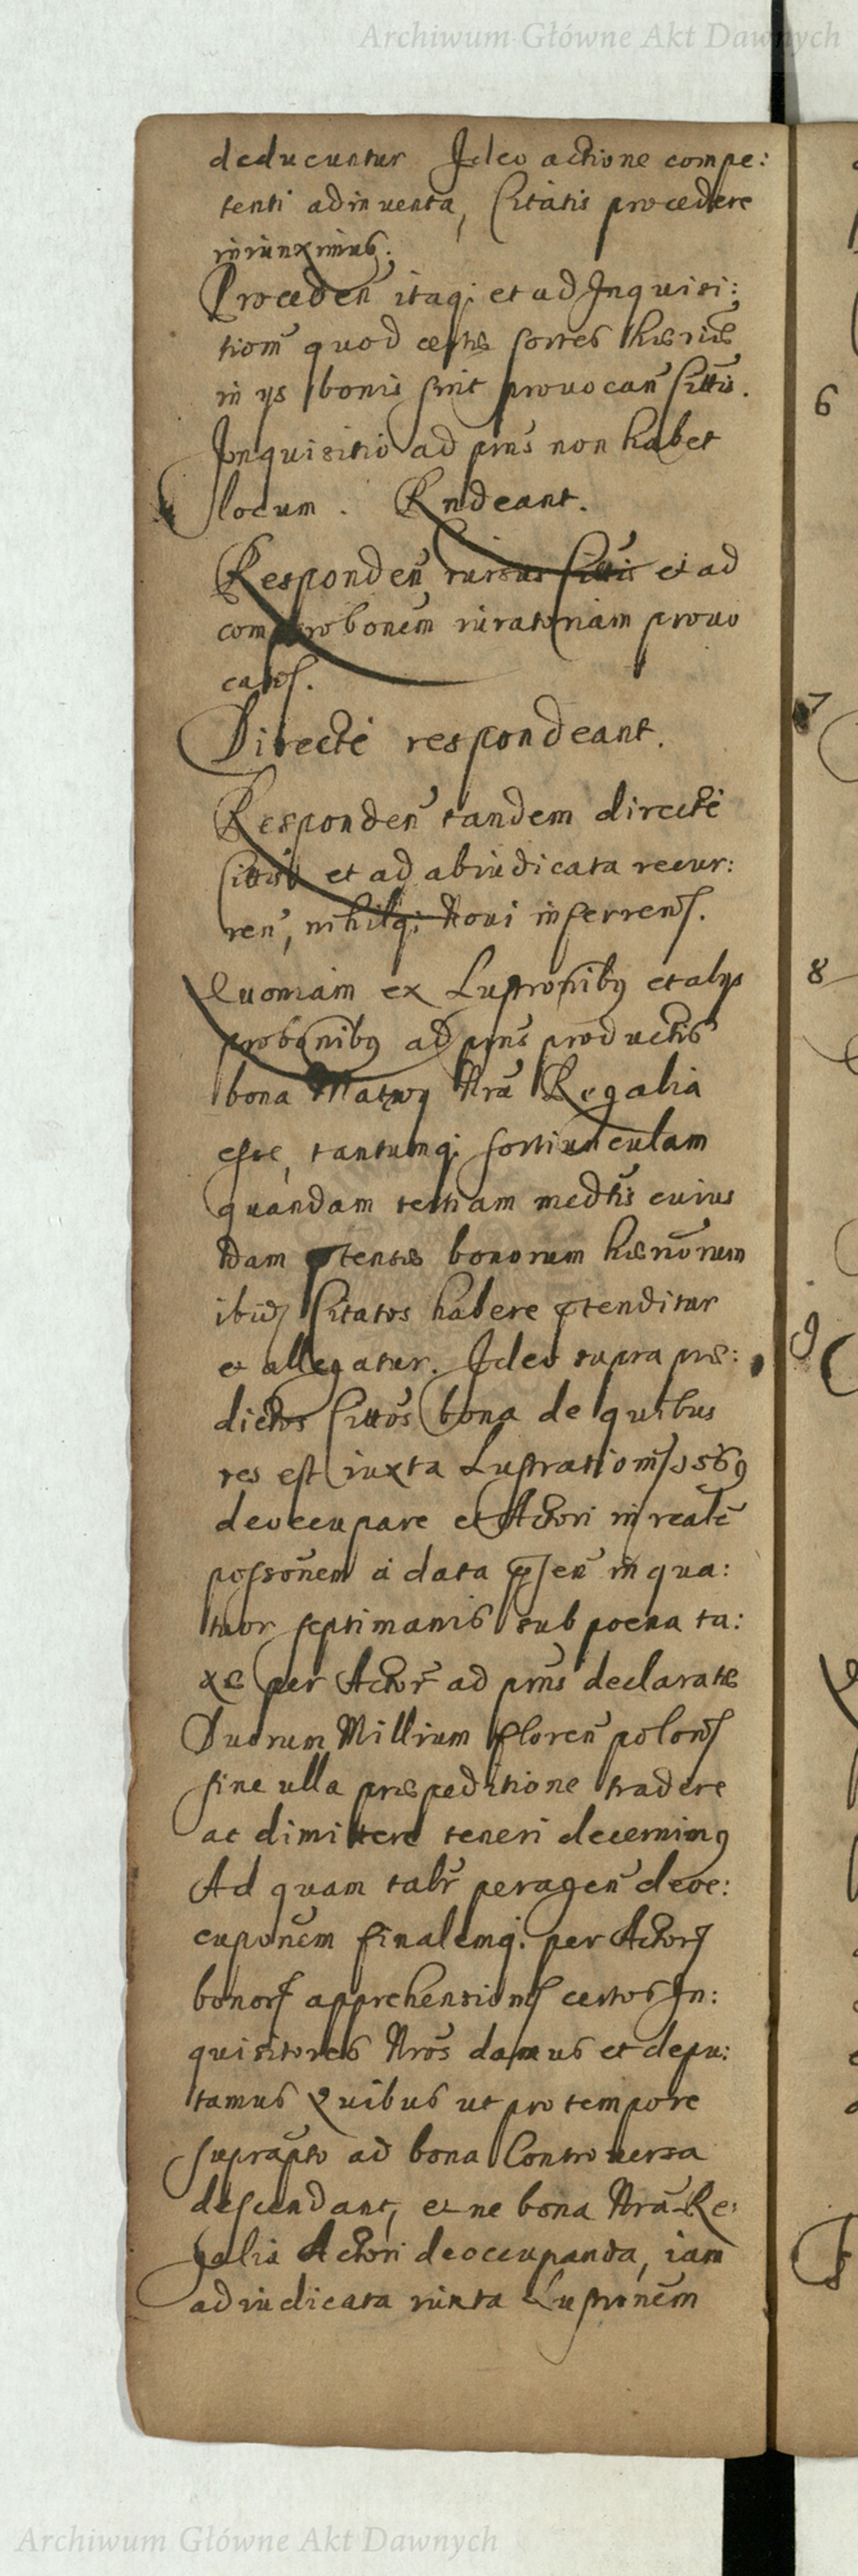 Archiwum Główne Akt Dawnych
deducuntur Ideo actione compe:
tenti adinventa, Citatis procedere
iniunximus.
Proceden̄ itaq; et ad Inquisi:
tiom̄ quod certæ sortes hæriæ
in ys bonis sint provocan̄ Cittis̄.
Inquisitio ad pm̄s non habet
locum. Rndeant.
Responden̄ rursus Cittis̄ et ad
comprobōnem iuratoriam provo
Directè respondeant.
Responden̄ tandem directè
Cittis̄ et ad abiudicata recur:
ren̄, nihilq; Novi inferren̄.
Quoniam ex Lustrōnibq et alys
probōnibq ad pm̄s productis
bona Nrā Regalia
esse, tantumq; sortiunculam
quandam tertiam medtis̄ cuius
dam ptensæ bonorum hærōrum
ibid Citatos habere ptenditur
et allegatur. Ideo supra præ:
dictos Cittōs bona de quibus
res est iuxta Lustrationē 1569
deoccupare et Actori in realē
possōnem à data pn̄tien̄ in qua:
tuor septimanis sub poena ta:
xæ per Actor̄ ad pm̄s declaratæ
Duorum Millium floren̄ polon̄
sine ulla præpeditione tradere
ac dimittere teneri decernimq
Ad quam talr̄ peragen̄ deoc:
cupōnem finalemq; per Actor̄
bonor̄ apprehension̄ certos In:
quisitores Nrōs damus et depu:
tamus Quibus ut pro tempore
suprāpto ad bona Controversa
descendant, et ne bona Nrā Re:
galia Actori deoccupanda, iam
adiudicata iuxta Lustrōnem
6
7
8
9
Archiwum Główne Akt Dawnych